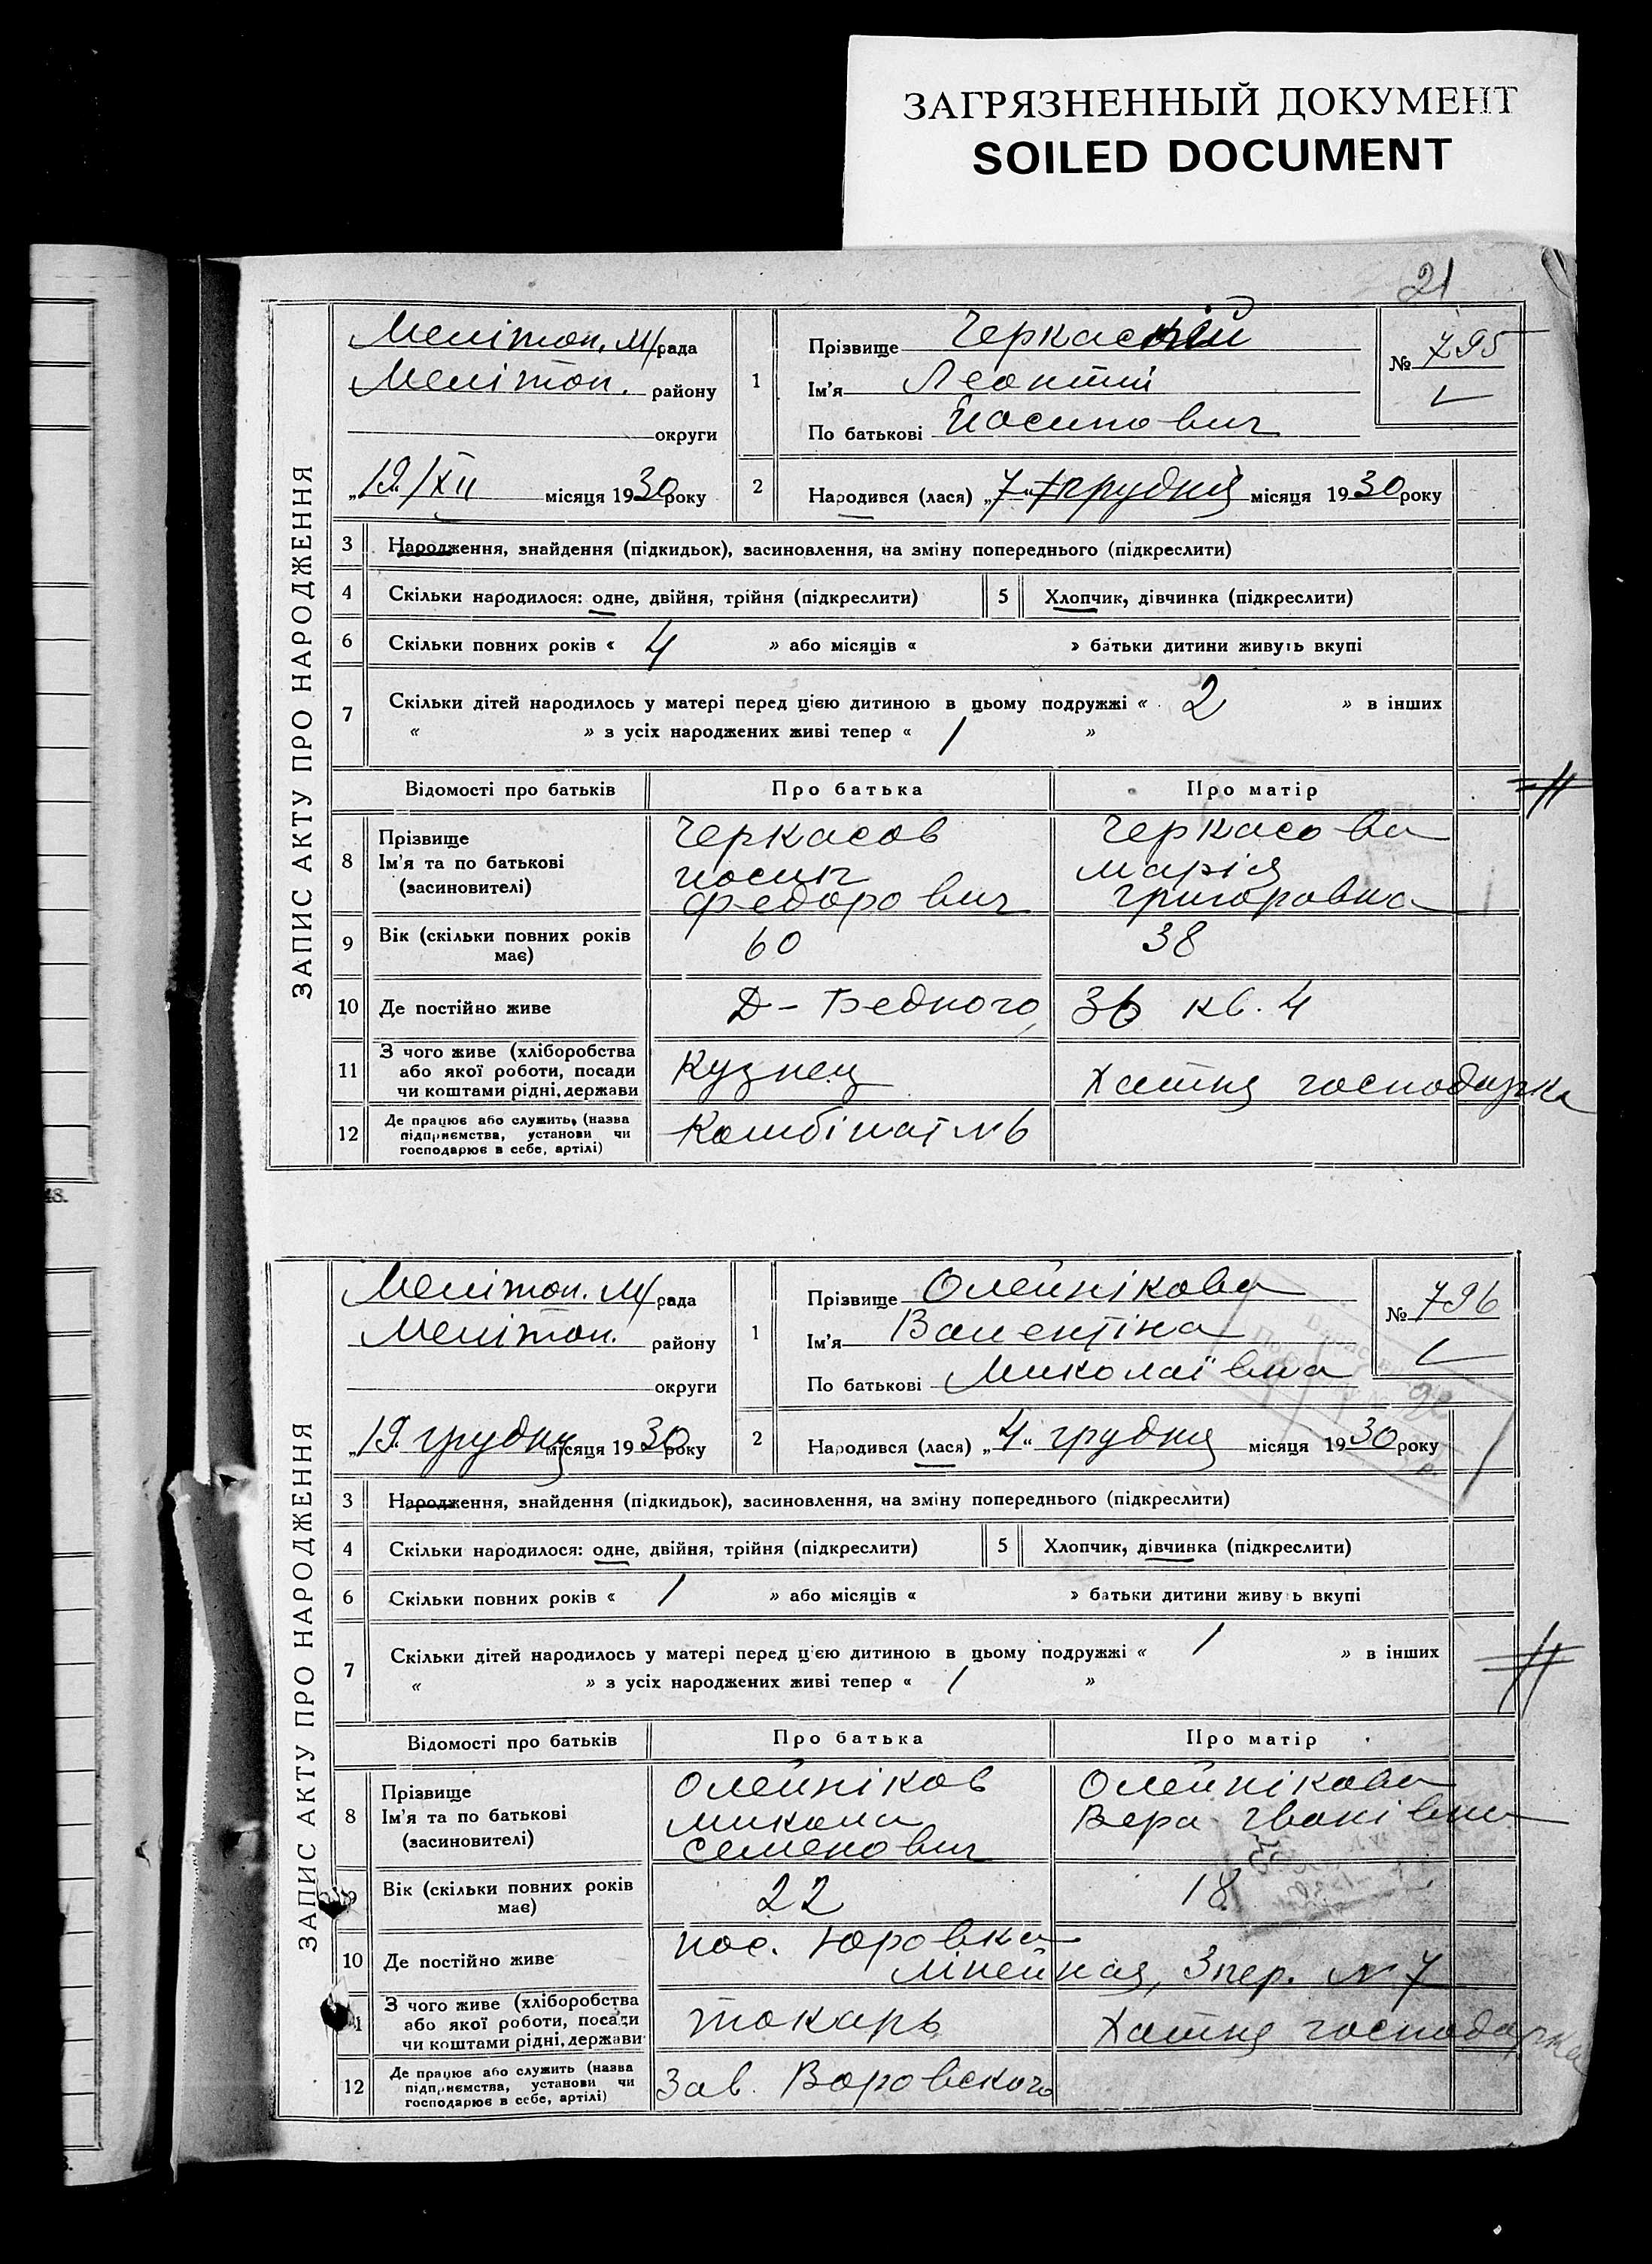 ЗАГРЯЗНЕННЫЙ ДОКУМЕНТ
SOILED DOCUMENT
21
ЗАПИС АКТУ ПРО НАРОДЖЕННЯ
Мелітоп. М/рада
Мелітоп. району
округи
„19./XII місяця 1930 року
1
Прізвище Черкаський
Ім'я Леонтий
По батькові Йосипович
№ 795
2
Народився (лася) „7“ грудня місяця 1930 року
3 Народження, знайдення (підкидьок), засиновлення, на зміну попереднього (підкреслити)
4 Скільки народилося: одне, двійня, трійня (підкреслити)
5 Хлопчик, дівчинка (підкреслити)
6 Скільки повних років « 4 » або місяців « » батьки дитини живуть вкупі
7 Скільки дітей народилось у матері перед цією дитиною в цьому подружжі « 2 » в інших
« » з усіх народжених живі тепер « 1 »
Відомості про батьків Про батька Про матір
8 Прізвище Ім'я та по батькові (засиновителі)
Черкасов Йосип Федорович
Черкасова Марія Григоровна
9 Вік (скільки повних років має) 60 38
10 Де постійно живе Д-Бедного 36 кв. 4
11 З чого живе (хліборобства або якої роботи, посади чи коштами рідні, держави
Кузнец Хатня господарка
12 Де працює або служить, (назва підприємства, установи чи господарює в себе, артілі)
Комбінат №6
48.
ЗАПИС АКТУ ПРО НАРОДЖЕННЯ
Мелітоп. М/рада
Мелітоп. району
округи
„19. грудня місяця 1930 року
1
Прізвище Олейнікова
Ім'я Валентіна
По батькові Миколаївна
№ 796
2
Народився (лася) „4“ грудня місяця 1930 року
3 Народження, знайдення (підкидьок), засиновлення, на зміну попереднього (підкреслити)
4 Скільки народилося: одне, двійня, трійня (підкреслити)
5 Хлопчик, дівчинка (підкреслити)
6 Скільки повних років « 1 » або місяців « » батьки дитини живуть вкупі
7 Скільки дітей народилось у матері перед цією дитиною в цьому подружжі « 1 » в інших
« » з усіх народжених живі тепер « 1 »
Відомості про батьків Про батька Про матір
8 Прізвище Ім'я та по батькові (засиновителі)
Олейніков Микола Семенович
Олейнікова Вера Іванівна
9 Вік (скільки повних років має) 22 18
10 Де постійно живе пос. Юровка Лінейная, 3 пер. № 7
11 З чого живе (хліборобства або якої роботи, посади чи коштами рідні, держави
токарь Хатня господарка
12 Де працює або служить (назва підприємства, установи чи господарює в себе, артілі)
Зав. Воровского